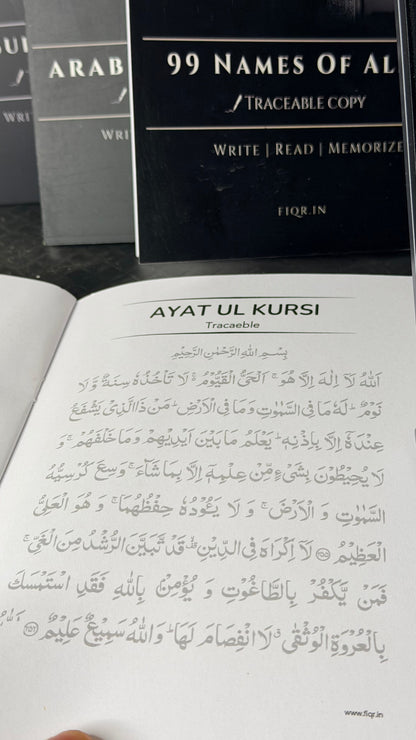 ARAB
WRI
WRI
99 NAMES OF AL
TRACEABLE COPY
WRITE | READ | MEMORIZE
FIQR.IN
AYAT UL KURSI
Tracaeble
بِسْمِ اللهِ الرَّحْمٰنِ الرَّحِيْمِ
اَللهُ لَآ اِلٰهَ اِلَّا هُوَ ۚ اَلْحَيُّ الْقَيُّوْمُ ۚ لَا تَاْخُذُهٗ سِنَةٌ وَّ لَا
نَوْمٌ ؕ لَهٗ مَا فِى السَّمٰوٰتِ وَ مَا فِى الْاَرْضِ ؕ مَنْ ذَا الَّذِىْ يَشْفَعُ
عِنْدَهٗۤ اِلَّا بِاِذْنِهٖ ؕ يَعْلَمُ مَا بَيْنَ اَيْدِيْهِمْ وَ مَا خَلْفَهُمْ ۚ وَ
لَا يُحِيْطُوْنَ بِشَىْءٍ مِّنْ عِلْمِهٖۤ اِلَّا بِمَا شَآءَ ۚ وَسِعَ كُرْسِيُّهُ
السَّمٰوٰتِ وَ الْاَرْضَ ۚ وَ لَا يَـُٔوْدُهٗ حِفْظُهُمَا ۚ وَ هُوَ الْعَلِىُّ
الْعَظِيْمُ ﴿۲۵۵﴾ لَاۤ اِكْرَاهَ فِى الدِّيْنِ ۙ قَدْ تَّبَيَّنَ الرُّشْدُ مِنَ الْغَىِّ ۚ
فَمَنْ يَّكْفُرْ بِالطَّاغُوْتِ وَ يُؤْمِنْۢ بِاللهِ فَقَدِ اسْتَمْسَكَ
بِالْعُرْوَةِ الْوُثْقٰى ۗ لَا انْفِصَامَ لَهَا ؕ وَ اللهُ سَمِيْعٌ عَلِيْمٌ ﴿۲۵۶﴾
www.fiqr.in